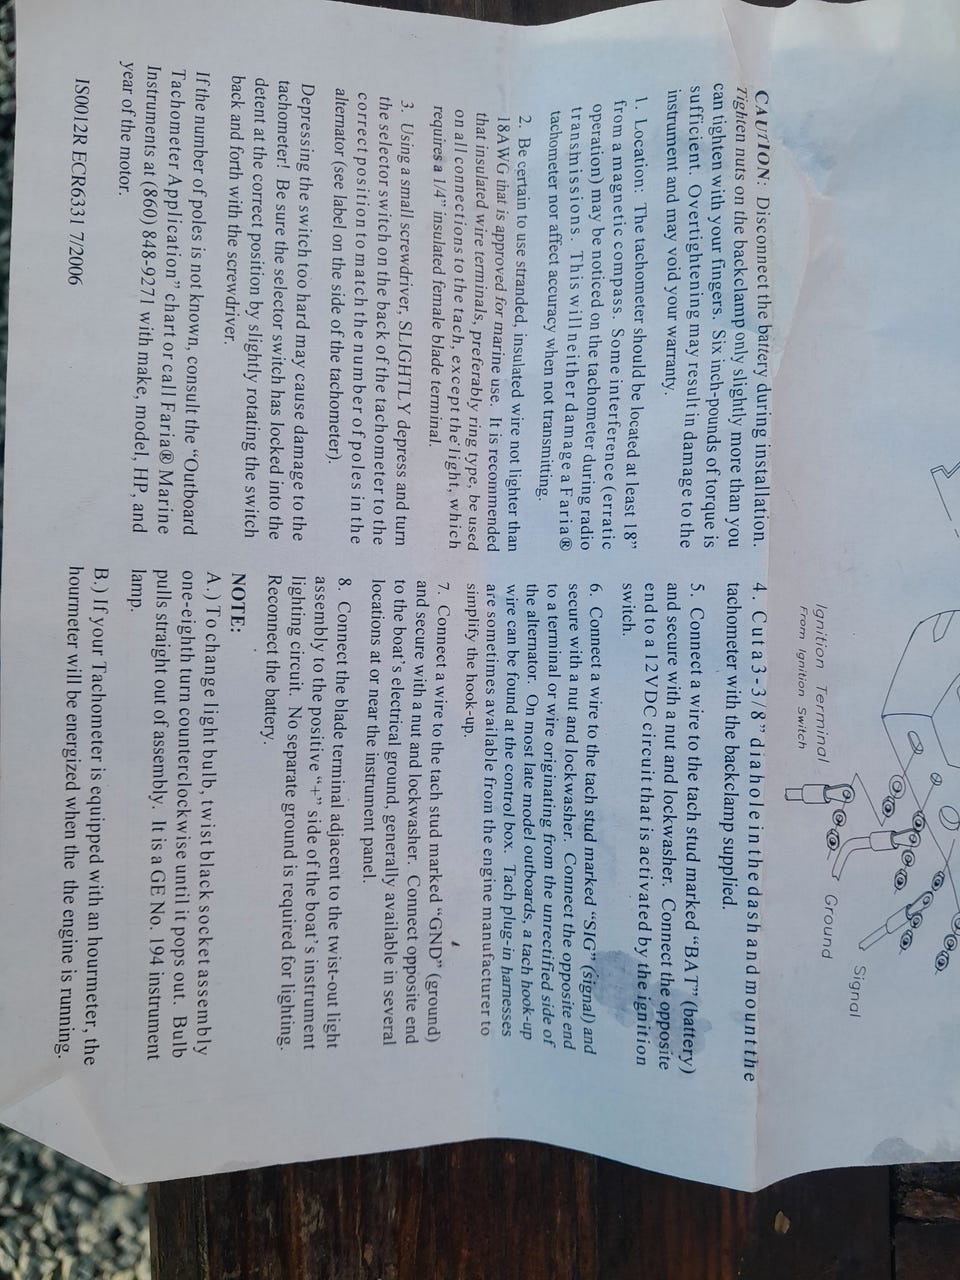 Ignition Terminal
From Ignition Switch
Ground
Signal
CAUTION: Disconnect the battery during installation.
Tighten nuts on the backclamp only slightly more than you
can tighten with your fingers. Six inch-pounds of torque is
sufficient. Overtightening may result in damage to the
instrument and may void your warranty.
1. Location: The tachometer should be located at least 18”
from a magnetic compass. Some interference (erratic
operation) may be noticed on the tachometer during radio
transmissions. This will neither damage a Faria®
tachometer nor affect accuracy when not transmitting.
2. Be certain to use stranded, insulated wire not lighter than
18AWG that is approved for marine use. It is recommended
that insulated wire terminals, preferably ring type, be used
on all connections to the tach, except the light, which
requires a 1/4” insulated female blade terminal.
3. Using a small screwdriver, SLIGHTLY depress and turn
the selector switch on the back of the tachometer to the
correct position to match the number of poles in the
alternator (see label on the side of the tachometer).
Depressing the switch too hard may cause damage to the
tachometer! Be sure the selector switch has locked into the
detent at the correct position by slightly rotating the switch
back and forth with the screwdriver.
If the number of poles is not known, consult the “Outboard
Tachometer Application” chart or call Faria® Marine
Instruments at (860) 848-9271 with make, model, HP, and
year of the motor.
IS0012R ECR6331 7/2006
4. Cut a 3-3/8” dia hole in the dash and mount the
tachometer with the backclamp supplied.
5. Connect a wire to the tach stud marked “BAT” (battery)
and secure with a nut and lockwasher. Connect the opposite
end to a 12VDC circuit that is activated by the ignition
switch.
6. Connect a wire to the tach stud marked “SIG” (signal) and
secure with a nut and lockwasher. Connect the opposite end
to a terminal or wire originating from the unrectified side of
the alternator. On most late model outboards, a tach hook-up
wire can be found at the control box. Tach plug-in harnesses
are sometimes available from the engine manufacturer to
simplify the hook-up.
7. Connect a wire to the tach stud marked “GND” (ground)
and secure with a nut and lockwasher. Connect opposite end
to the boat’s electrical ground, generally available in several
locations at or near the instrument panel.
8. Connect the blade terminal adjacent to the twist-out light
assembly to the positive “+” side of the boat’s instrument
lighting circuit. No separate ground is required for lighting.
Reconnect the battery.
NOTE:
A.) To change light bulb, twist black socket assembly
one-eighth turn counterclockwise until it pops out. Bulb
pulls straight out of assembly. It is a GE No. 194 instrument
lamp.
B.) If your Tachometer is equipped with an hourmeter, the
hourmeter will be energized when the the engine is running.